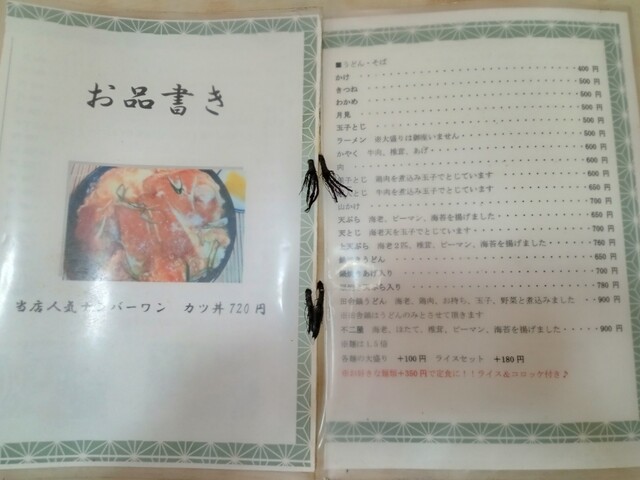 お品書き
当店人気ナンバーワン カツ丼 720円
■うどん・そば
かけ 400 円
きつね 500 円
わかめ 500 円
月見 500 円
玉子とじ 500 円
ラーメン ※大盛りは御座いません 500 円
かやく 牛肉、椎茸、あげ 600 円
肉 600 円
とじ 鶏肉を煮込み玉子でとじています 600 円
とじ 牛肉を煮込み玉子でとじています 650 円
山かけ 700 円
天ぷら 海老、ピーマン、海苔を揚げました 650 円
天とじ 海老天を玉子でとじています 700 円
上天ぷら 海老2匹、椎茸、ピーマン、海苔を揚げました 760 円
うどん 650 円
あげ入り 700 円
天ぷら入り 780 円
田舎鍋うどん 海老、鶏肉、お持ち、玉子、野菜と煮込みました 900 円
※田舎鍋はうどんのみとさせて頂きます
不二屋 海老、ほたて、椎茸、ピーマン、海苔を揚げました 900 円
※麺は1.5倍
各麺の大盛り +100円 ライスセット +180円
※お好きな麺類+350円で定食に!!ライス&コロッケ付き♪